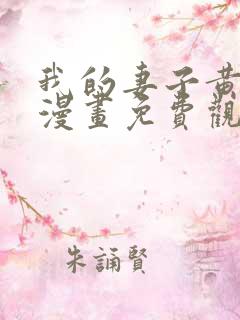 我的妻子黃
漫畫免費觀
朱誦賢